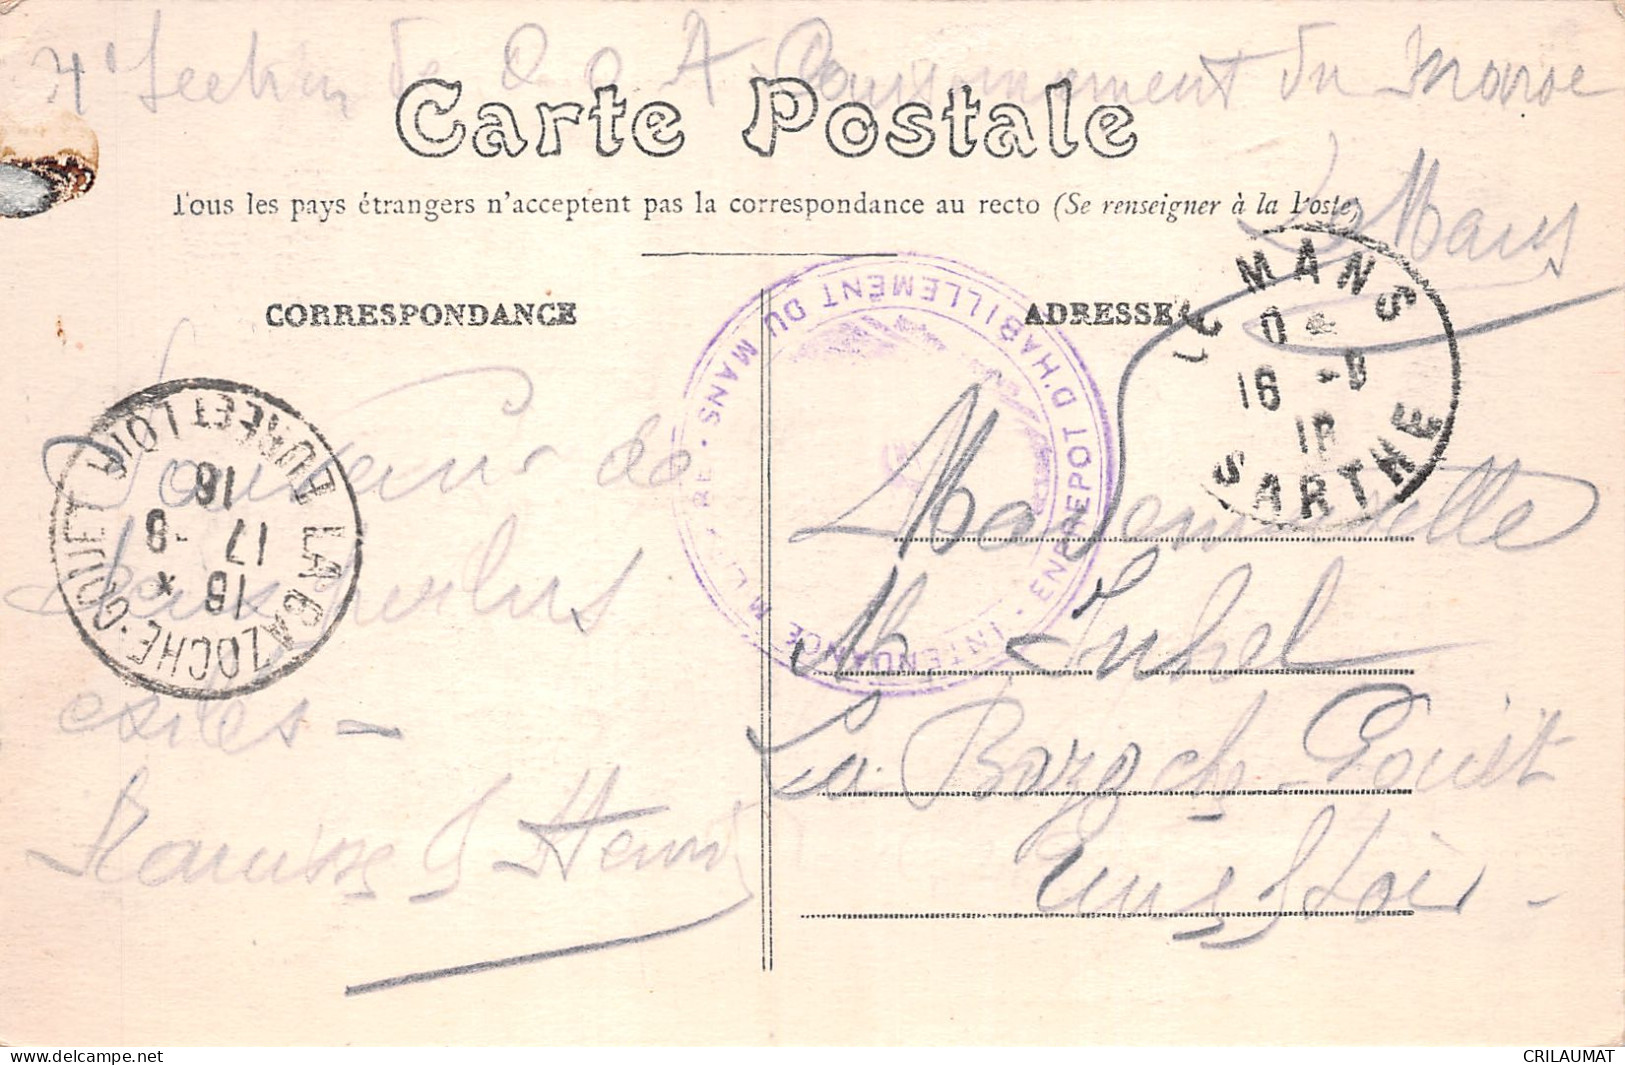 4e Section de C O A Casernement du Maroc
Le Mans
Carte Postale
Tous les pays étrangers n'acceptent pas la correspondance au recto (Se renseigner à la Poste)
CORRESPONDANCE
ADRESSE
Souvenir de
exilés -
Henri
Mademoiselle
La Bazoche-Gouet
Eure & Loir -
LE MANS
16 -8
SARTHE
LA BAZOCHE-GOUET EURE ET LOIR
18 *
17 -8
16
INTENDANCE MILITAIRE · MANS
ENTREPOT D'HABILLEMENT DU MANS
www.delcampe.net
CRILAUMAT